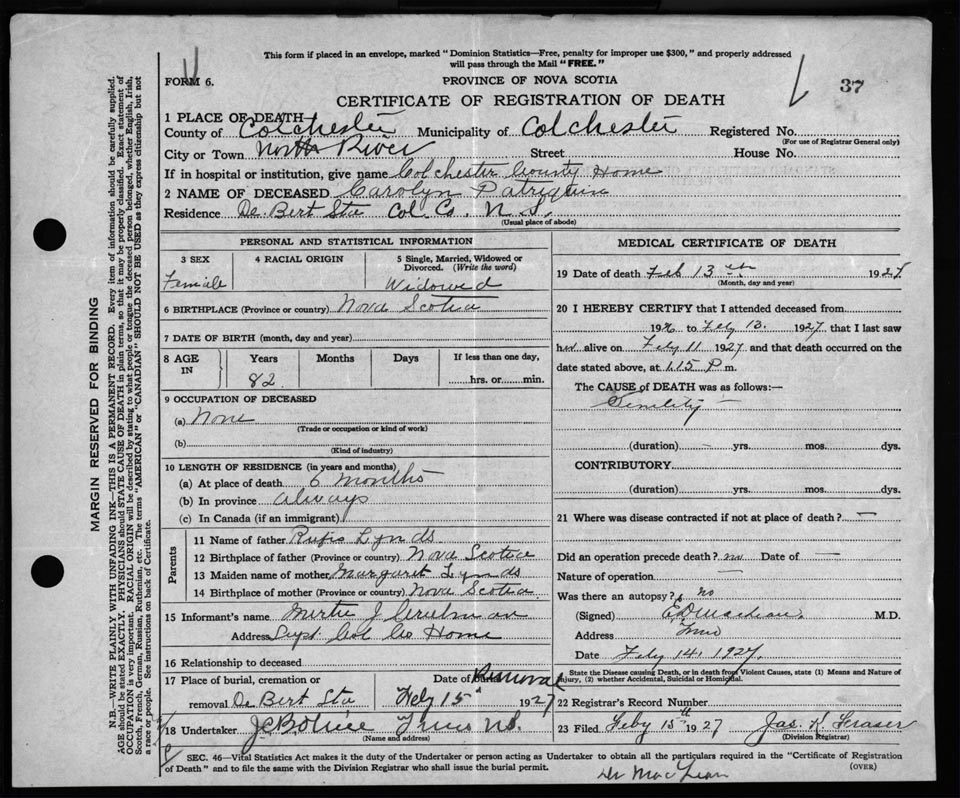 This form if placed in an envelope, marked "Dominion Statistics—Free, penalty for improper use $300," and properly addressed
will pass through the Mail "FREE."
FORM 6.
PROVINCE OF NOVA SCOTIA
37
CERTIFICATE OF REGISTRATION OF DEATH
1 PLACE OF DEATH
County of Colchester Municipality of Colchester Registered No.
(For use of Registrar General only)
City or Town North River Street House No.
If in hospital or institution, give name Colchester County Home
2 NAME OF DECEASED Carolyn Patriquin
Residence De Bert Sta Col. Co. N.S.
(Usual place of abode)
PERSONAL AND STATISTICAL INFORMATION
3 SEX 4 RACIAL ORIGIN 5 Single, Married, Widowed or
Divorced. (Write the word)
Female Widowed
6 BIRTHPLACE (Province or country) Nova Scotia
7 DATE OF BIRTH (month, day and year)
8 AGE IN Years Months Days If less than one day,
82 hrs. or min.
9 OCCUPATION OF DECEASED
(a) None
(Trade or occupation or kind of work)
(b)
(Kind of industry)
10 LENGTH OF RESIDENCE (in years and months)
(a) At place of death 6 months
(b) In province always
(c) In Canada (if an immigrant)
Parents
11 Name of father Rufis Lynds
12 Birthplace of father (Province or country) Nova Scotia
13 Maiden name of mother Margaret Lynds
14 Birthplace of mother (Province or country) Nova Scotia
15 Informant's name J
Address Supt. Col Co Home
16 Relationship to deceased
17 Place of burial, cremation or Date of Removal
removal De Bert Sta Feby 15 1927
18 Undertaker N.S.
(Name and address)
MEDICAL CERTIFICATE OF DEATH
19 Date of death Feb 13th 1927
(Month, day and year)
20 I HEREBY CERTIFY that I attended deceased from
192 to Feby 13. 1927, that I last saw
her alive on Feby 11 1927 and that death occurred on the
date stated above, at 1.15 P m.
The CAUSE of DEATH was as follows:—
Senility —
(duration) yrs. mos. dys.
CONTRIBUTORY
(duration) yrs. mos. dys.
21 Where was disease contracted if not at place of death? —
Did an operation precede death? no Date of —
Nature of operation —
Was there an autopsy? no
(Signed) M.D.
Address
Date Feby 14, 1927.
State the Disease causing Death, or in death from Violent Causes, state (1) Means and Nature of
Injury, (2) whether Accidental, Suicidal or Homicidal.
22 Registrar's Record Number
23 Filed Feby 15th 1927 Jas. K. Fraser
(Division Registrar)
SEC. 46—Vital Statistics Act makes it the duty of the Undertaker or person acting as Undertaker to obtain all the particulars required in the "Certificate of Registration
of Death" and to file the same with the Division Registrar who shall issue the burial permit.
(OVER)
Dr MacLean
MARGIN RESERVED FOR BINDING
N.B.—WRITE PLAINLY WITH UNFADING INK—THIS IS A PERMANENT RECORD. Every item of information should be carefully supplied.
AGE should be stated EXACTLY. PHYSICIANS should STATE CAUSE OF DEATH in plain terms, so that it may be properly classified. Exact statement of
OCCUPATION is very important. RACIAL ORIGIN will be described by stating to what people or tongue the deceased person belonged, whether English, Irish,
Scotch, French, German, Russian, Ruthenian, etc. The terms "AMERICAN" or "CANADIAN" SHOULD NOT BE USED as they express citizenship but not
a race or people. See instructions on back of Certificate.